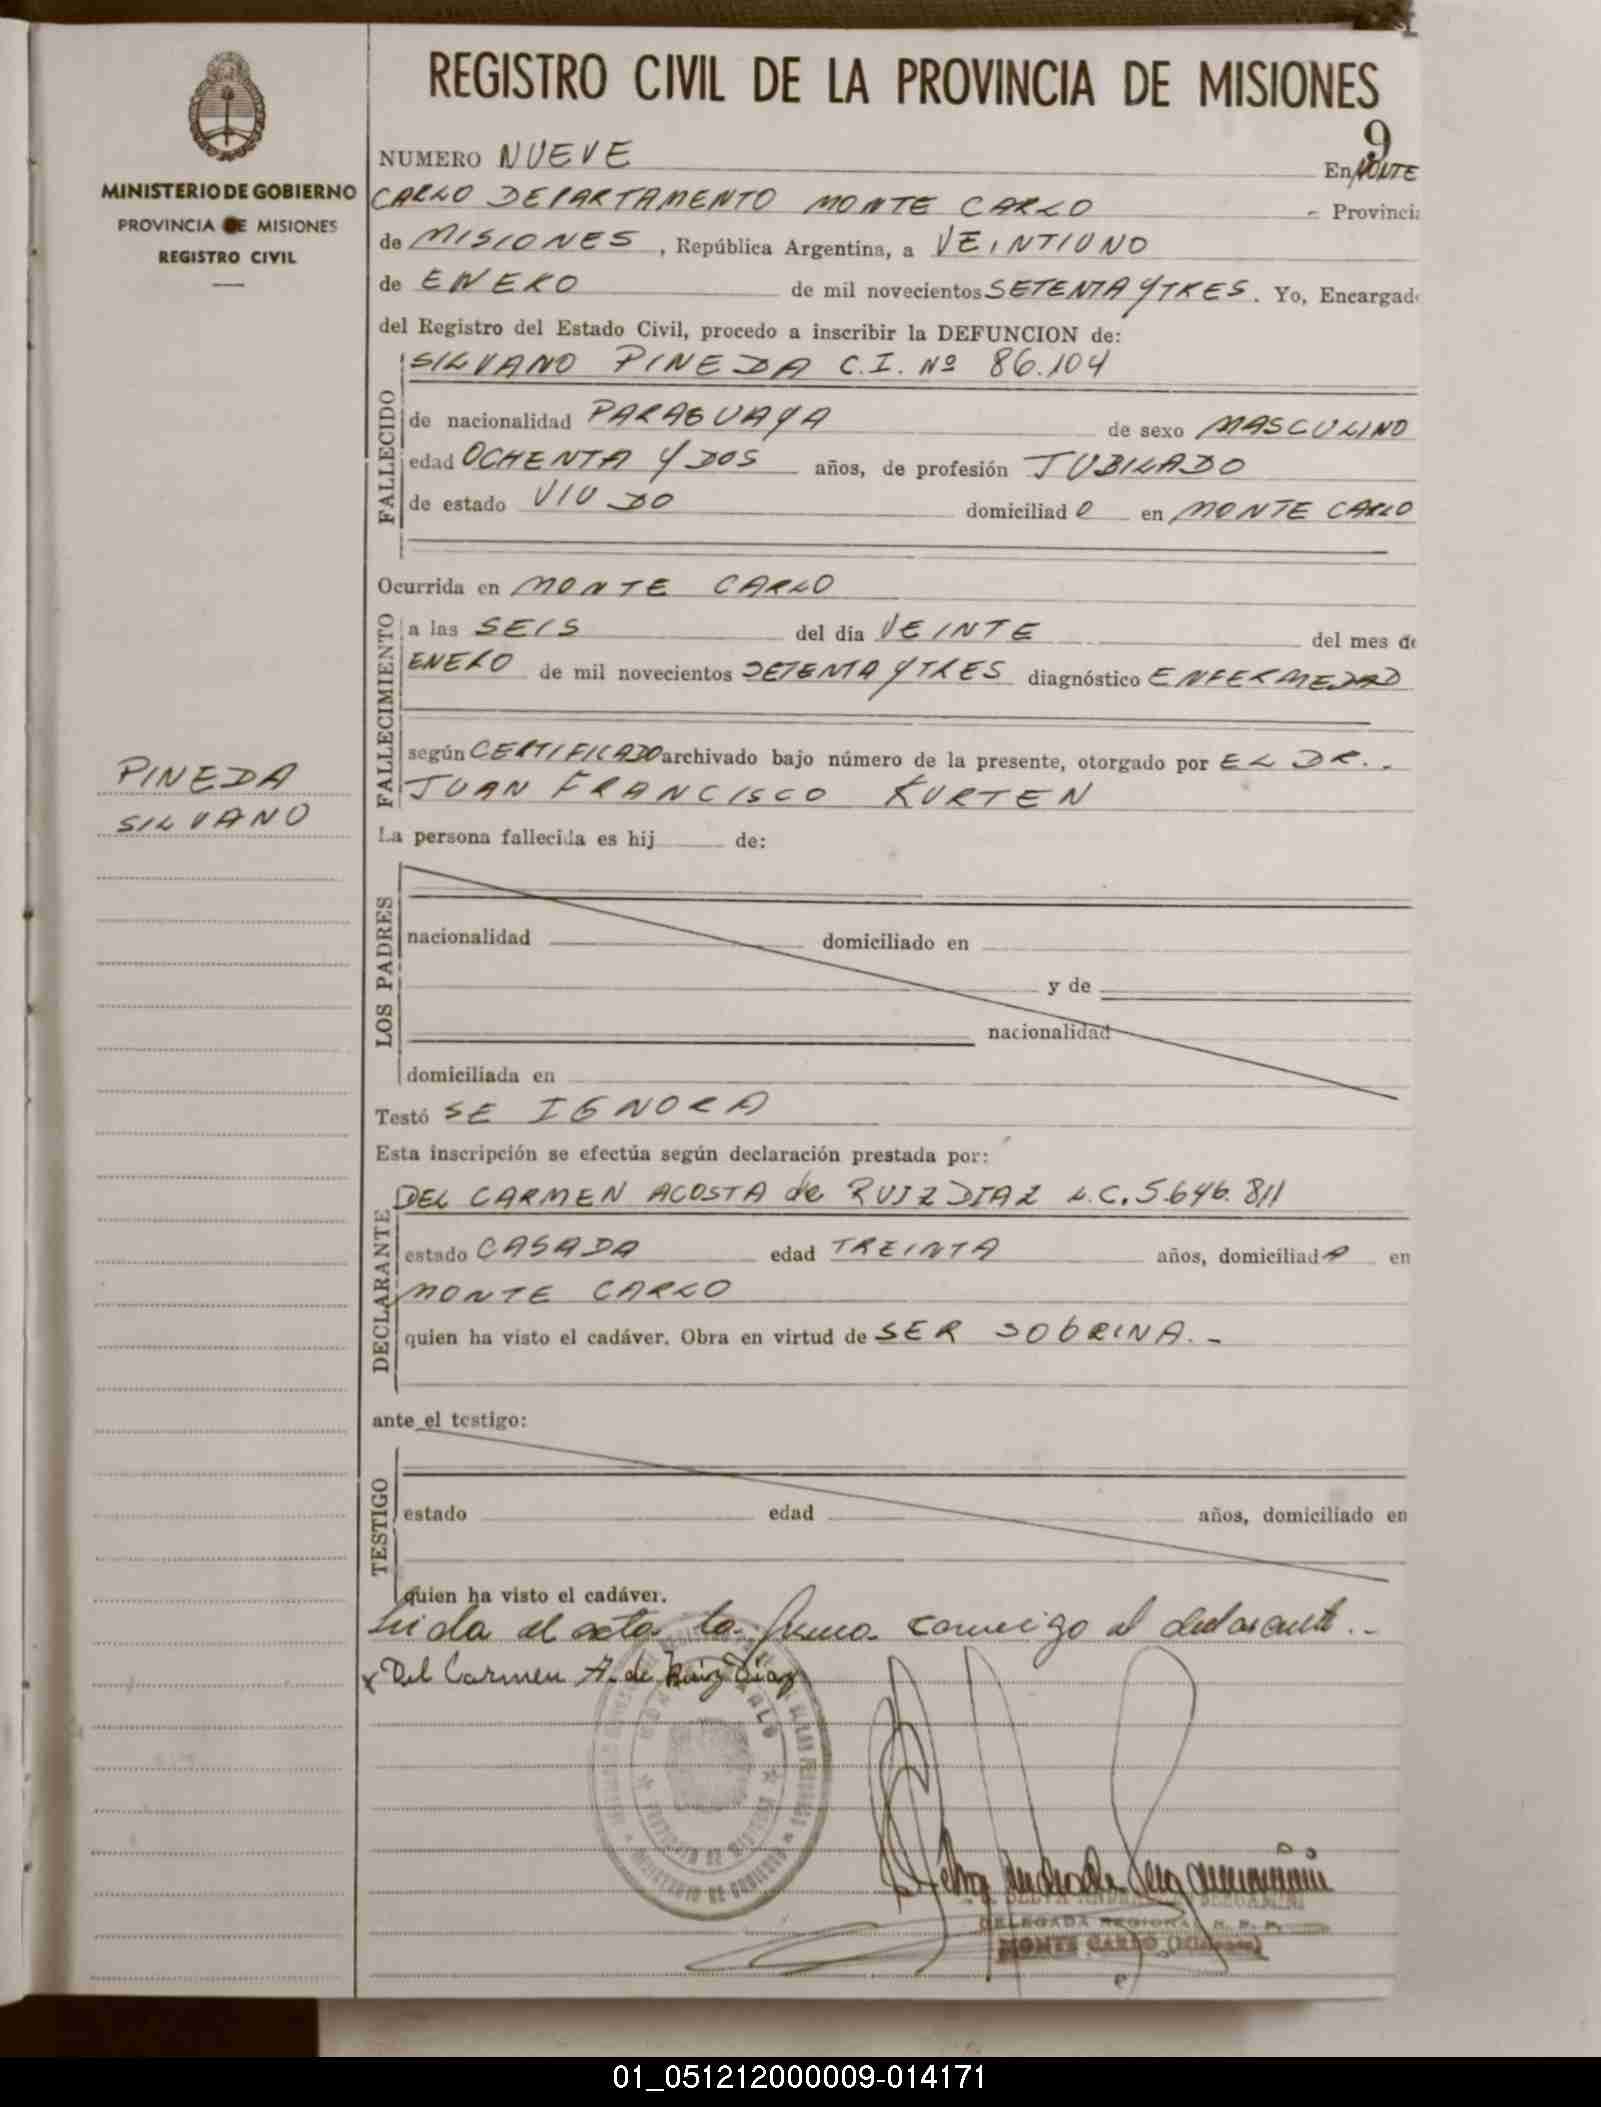 REGISTRO CIVIL DE LA PROVINCIA DE MISIONES
9
MINISTERIO DE GOBIERNO
PROVINCIA DE MISIONES
REGISTRO CIVIL
NUMERO NUEVE En MONTE
CARLO DEPARTAMENTO MONTE CARLO - Provincia
de MISIONES, República Argentina, a VEINTIUNO
de ENERO de mil novecientos SETENTA Y TRES. Yo, Encargado
del Registro del Estado Civil, procedo a inscribir la DEFUNCION de:
FALLECIDO
SILVANO PINEDA C.I. Nº 86.104
de nacionalidad PARAGUAYA de sexo MASCULINO
edad OCHENTA Y DOS años, de profesión JUBILADO
de estado VIUDO domiciliado en MONTE CARLO
Ocurrida en MONTE CARLO
FALLECIMIENTO
a las SEIS del día VEINTE del mes de
ENERO de mil novecientos SETENTA Y TRES diagnóstico ENFERMEDAD
según CERTIFICADO archivado bajo número de la presente, otorgado por EL DR..
JUAN FRANCISCO KURTEN
PINEDA
SILVANO
La persona fallecida es hij de:
LOS PADRES
nacionalidad domiciliado en
y de
nacionalidad
domiciliada en
Testó SE IGNORA
Esta inscripción se efectúa según declaración prestada por:
DECLARANTE
DEL CARMEN ACOSTA de RUIZ DIAZ L.C. 5.646.811
estado CASADA edad TREINTA años, domiciliada en
MONTE CARLO
quien ha visto el cadáver. Obra en virtud de SER SOBRINA.-
ante el testigo:
TESTIGO
estado edad años, domiciliado en
quien ha visto el cadáver.
Leida el acta la firma conmigo el declarante.-
x Del Carmen A. de Ruiz Diaz
DELEGADA REGIONAL R. P. P.
MONTE CARLO (Misiones)
01_051212000009-014171